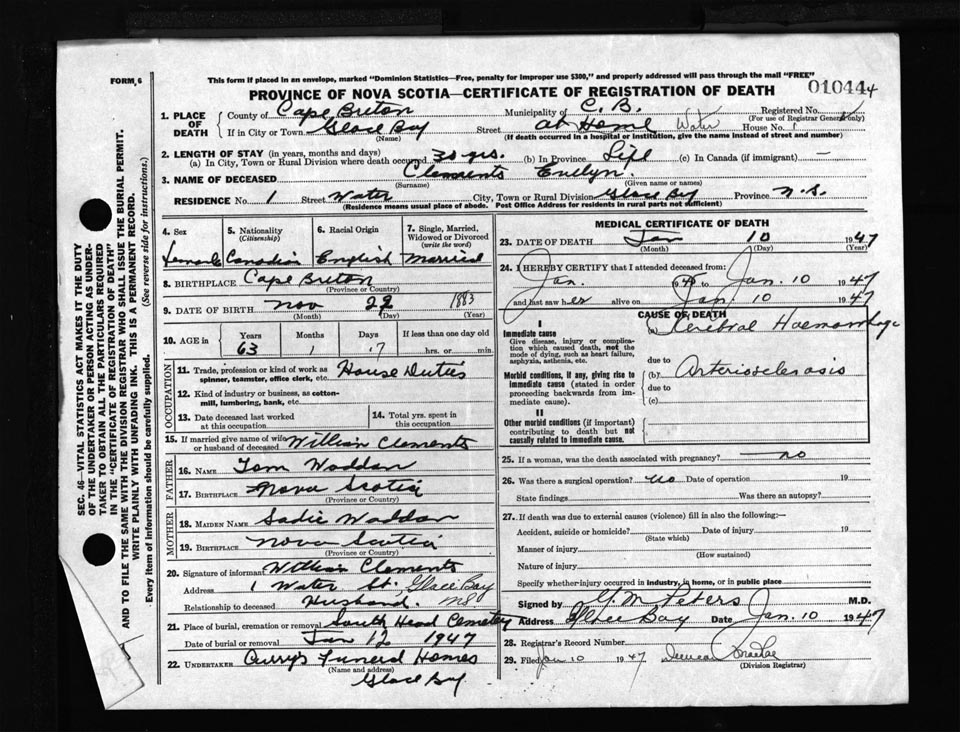 FORM 6
This form if placed in an envelope, marked "Dominion Statistics—Free, penalty for improper use $300," and properly addressed will pass through the mail "FREE"
PROVINCE OF NOVA SCOTIA—CERTIFICATE OF REGISTRATION OF DEATH
010444
1. PLACE OF DEATH
County of Cape Breton Municipality of C. B. Registered No.
(For use of Registrar General only)
If in City or Town Glace Bay Street at Home Water House No. 1
(Name) (If death occurred in a hospital or institution, give the name instead of street and number)
2. LENGTH OF STAY (in years, months and days)
(a) In City, Town or Rural Division where death occurred 30 yrs. (b) In Province Life (c) In Canada (if immigrant) —
3. NAME OF DECEASED Clements Evelyn.
(Surname) (Given name or names)
RESIDENCE No. 1 Street Water City, Town or Rural Division Glace Bay Province N. S.
(Residence means usual place of abode. Post Office Address for residents in rural parts not sufficient)
4. Sex 5. Nationality (Citizenship) 6. Racial Origin 7. Single, Married, Widowed or Divorced (write the word)
Female Canadian English Married
8. BIRTHPLACE Cape Breton
(Province or Country)
9. DATE OF BIRTH Nov 22 1883
(Month) (Day) (Year)
10. AGE in Years Months Days If less than one day old
63 1 17 hrs. or min.
OCCUPATION
11. Trade, profession or kind of work as spinner, teamster, office clerk, etc. House Duties
12. Kind of industry or business, as cotton-mill, lumbering, bank, etc.
13. Date deceased last worked at this occupation 14. Total yrs. spent in this occupation
15. If married give name of wife or husband of deceased William Clements
FATHER
16. NAME Tom Waddan
17. BIRTHPLACE Nova Scotia
(Province or Country)
MOTHER
18. MAIDEN NAME Sadie Waddan
19. BIRTHPLACE Nova Scotia
(Province or Country)
20. Signature of informant William Clements
Address 1 Water St, Glace Bay NS
Relationship to deceased Husband.
21. Place of burial, cremation or removal South Head Cemetery
Date of burial or removal Jan 12 1947
22. UNDERTAKER Curry's Funeral Homes
(Name and address)
Glace Bay
MEDICAL CERTIFICATE OF DEATH
23. DATE OF DEATH Jan 10 1947
(Month) (Day) (Year)
24. I HEREBY CERTIFY that I attended deceased from:
Jan. 1945 to Jan. 10 1947
and last saw her alive on Jan. 10 1947
CAUSE OF DEATH
I
Immediate cause (a) Cerebral Haemorrhage
Give disease, injury or complication which caused death, not the mode of dying, such as heart failure, asphyxia, asthenia, etc.
due to
Morbid conditions, if any, giving rise to immediate cause (stated in order proceeding backwards from immediate cause).
(b) Arteriosclerosis
due to
(c)
II
Other morbid conditions (if important) contributing to death but not causally related to immediate cause.
25. If a woman, was the death associated with pregnancy? no
26. Was there a surgical operation? no Date of operation 19
State findings Was there an autopsy?
27. If death was due to external causes (violence) fill in also the following:—
Accident, suicide or homicide? Date of injury 19
(State which)
Manner of injury
(How sustained)
Nature of injury
Specify whether injury occurred in industry, in home, or in public place
Signed by M Peters M.D.
Address Glace Bay Date Jan. 10 1947
28. Registrar's Record Number
29. Filed Jan 10 1947 Duncan
(Division Registrar)
SEC. 46—VITAL STATISTICS ACT MAKES IT THE DUTY
OF THE UNDERTAKER OR PERSON ACTING AS UNDER-
TAKER TO OBTAIN ALL THE PARTICULARS REQUIRED
IN THE "CERTIFICATE OF REGISTRATION OF DEATH"
AND TO FILE THE SAME WITH THE DIVISION REGISTRAR WHO SHALL ISSUE THE BURIAL PERMIT.
WRITE PLAINLY WITH UNFADING INK. THIS IS A PERMANENT RECORD.
Every item of information should be carefully supplied. (See reverse side for instructions.)